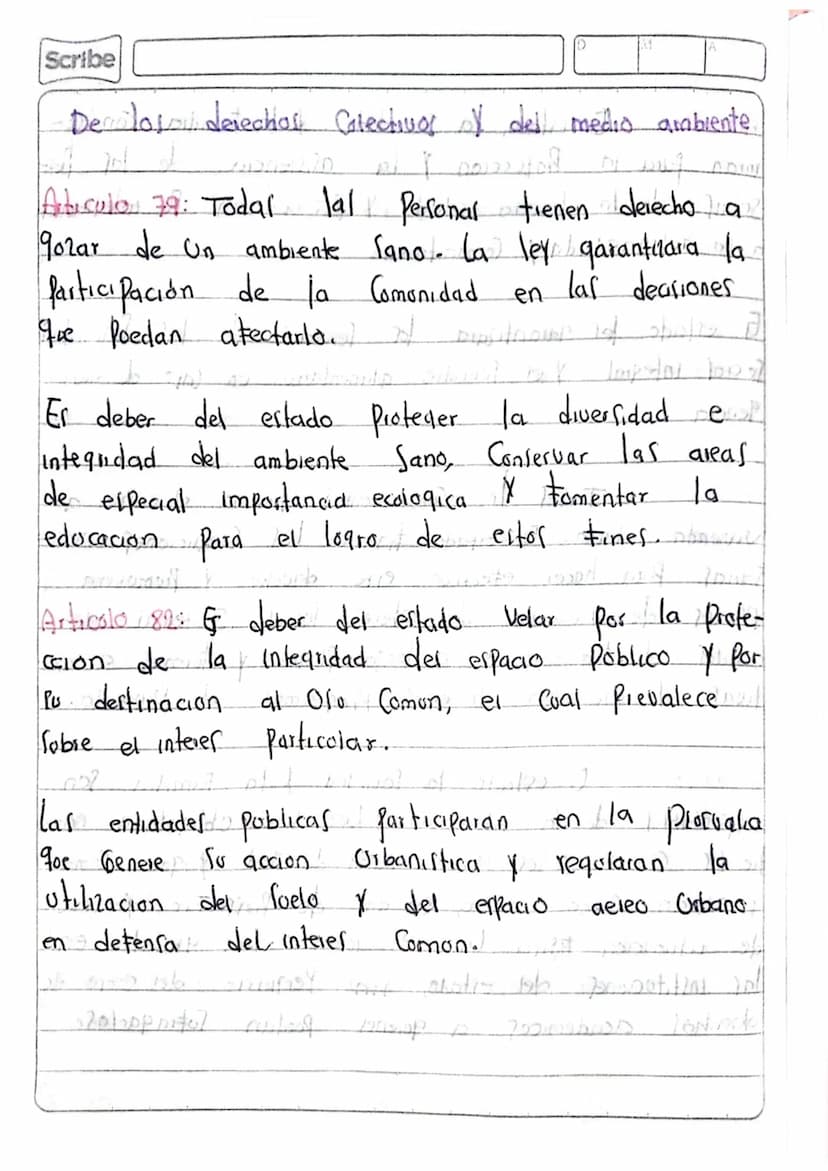 Scribe
D M A
De los derechos Colectivos y del medio ambiente
Articulo 79: Todas las Personas tienen derecho a
gozar de un ambiente sano. La ley garantizara la
Participación de la Comunidad en las decisiones
que Puedan afectarlo.
Es deber del estado Proteger la diversidad e
integridad del ambiente Sano, Conservar las areas
de especial importancia ecologica y fomentar la
educacion Para el logro de estos fines.
Articulo 82: Es deber del estado Velar Por la Prote-
ccion de la integridad del espacio Público y Por
su destinacion al Uso Comun, el Cual Prevalece
sobre el interes Particular.
Las entidades publicas Participaran en la Plusvalia
que Genere su accion Urbanistica y regularan la
utilizacion del suelo y del espacio aereo Urbano
en defensa del interes Comun.